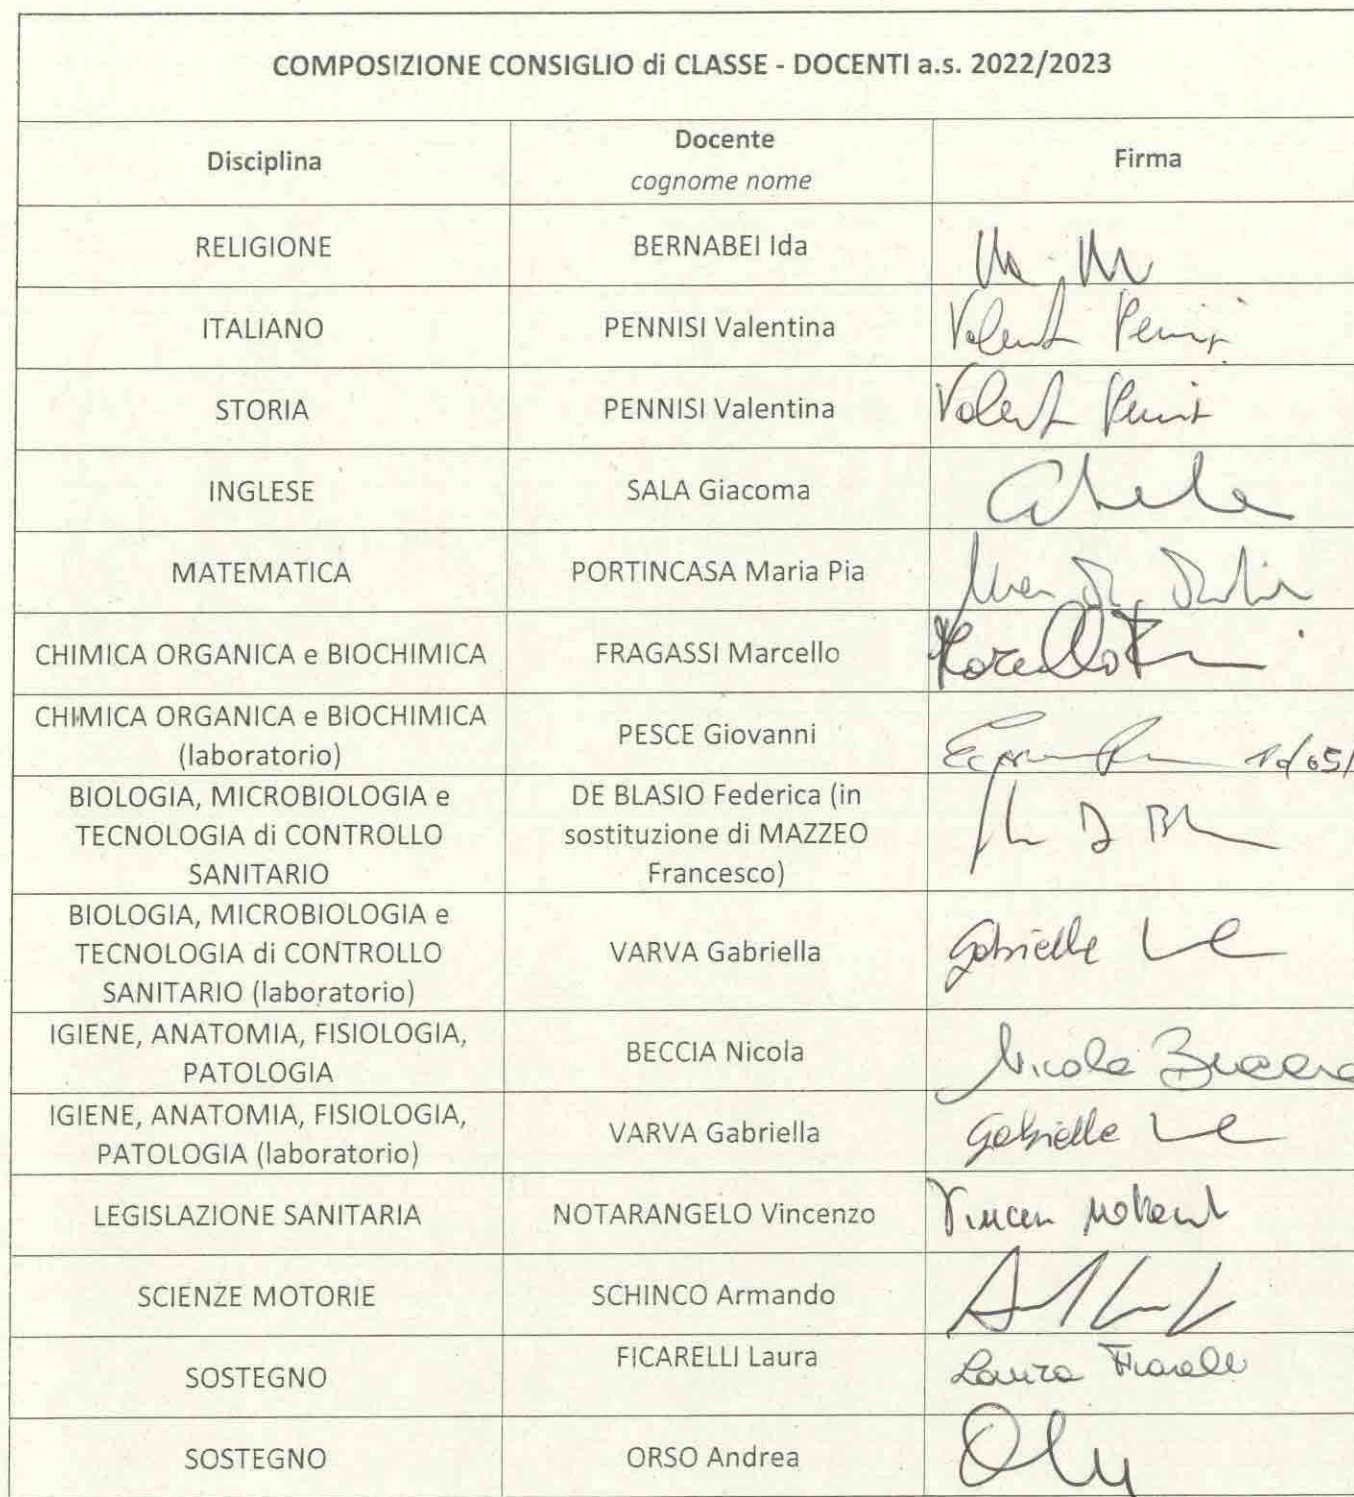 COMPOSIZIONE CONSIGLIO di CLASSE - DOCENTI a.s. 2022/2023
Disciplina
Docente
cognome nome
Firma
RELIGIONE
BERNABEI Ida
ITALIANO
PENNISI Valentina
STORIA
PENNISI Valentina
INGLESE
SALA Giacoma
MATEMATICA
PORTINCASA Maria Pia
CHIMICA ORGANICA e BIOCHIMICA
FRAGASSI Marcello
CHIMICA ORGANICA e BIOCHIMICA
(laboratorio)
PESCE Giovanni
BIOLOGIA, MICROBIOLOGIA e
TECNOLOGIA di CONTROLLO
SANITARIO
DE BLASIO Federica (in
sostituzione di MAZZEO
Francesco)
BIOLOGIA, MICROBIOLOGIA e
TECNOLOGIA di CONTROLLO
SANITARIO (laboratorio)
VARVA Gabriella
IGIENE, ANATOMIA, FISIOLOGIA,
PATOLOGIA
BECCIA Nicola
Nicola Beccia
IGIENE, ANATOMIA, FISIOLOGIA,
PATOLOGIA (laboratorio)
VARVA Gabriella
LEGISLAZIONE SANITARIA
NOTARANGELO Vincenzo
SCIENZE MOTORIE
SCHINCO Armando
SOSTEGNO
FICARELLI Laura
Laura Ficarelli
SOSTEGNO
ORSO Andrea